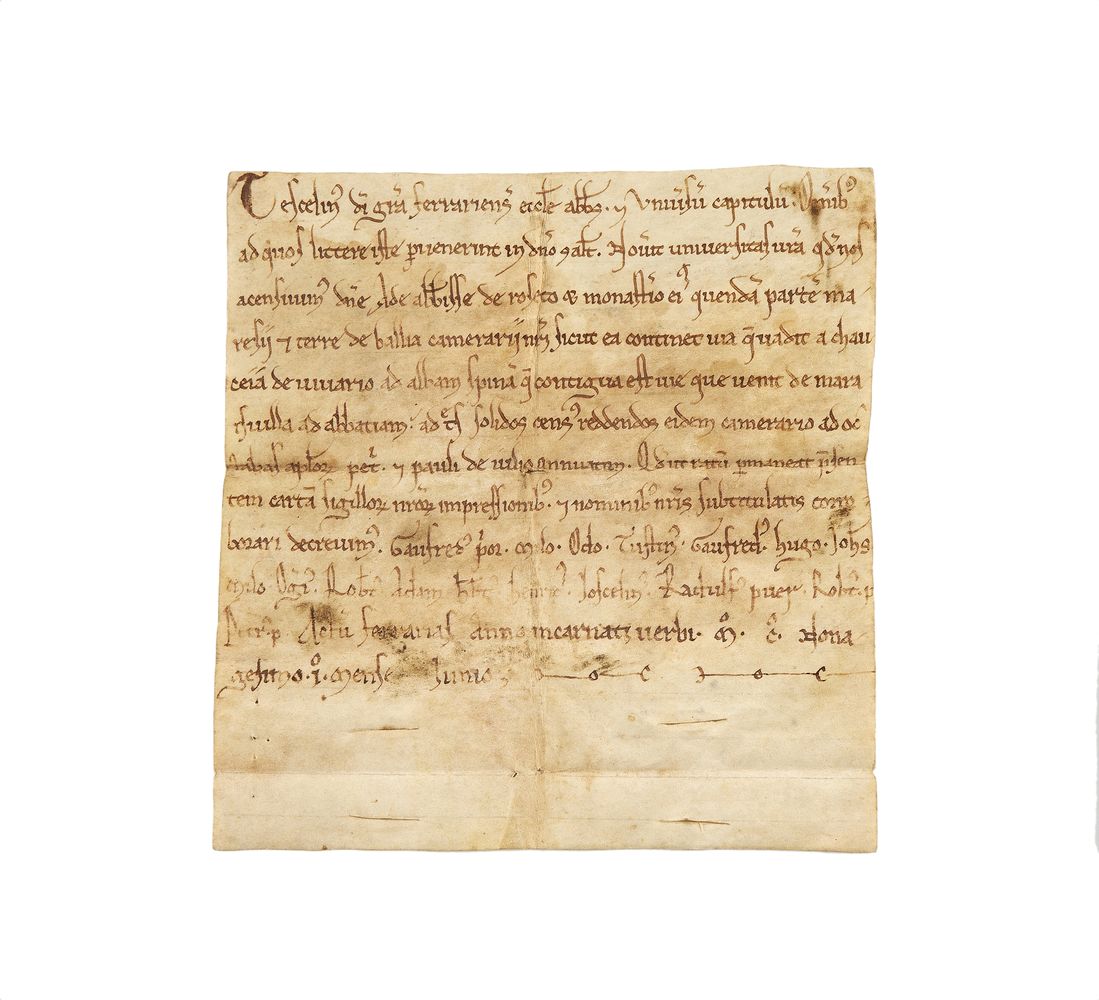 Tescelin⁹ dī gr̄a ferrariens̄ eccl̄e abb̄s · ⁊ vniūsū capitulū · Om̄ib⁹
ad quos littere iste p̄uenerint in dn̄o salt̄ · Nouīt uniuersitas ur̄a qd̄ nos
acensiuim⁹ dn̄e Ade abb̄isse de roseto & monastīo ei⁹ quendā partē ma
resii ⁊ terre de ballia camerarii nr̄i sicut ea continet uia q̄ uadit a chau
ceiā de uiuario ad albam spinā q̄ contigua est uie que uenit de mara
suilla ad abbatiam · ad solidos cens⁹ reddendos eidem camerario ad oc
tabas aplōr pet̄ · ⁊ pauli de iulio annuatim · Qd̄ ut ratū p̄maneat p̄sen
tem cartā sigillor nrōr impressionib⁹ · ⁊ nominib⁹ nr̄is subtitulatis corro
borari decreuim⁹ · Gaufred⁹ p̄or · Milo · Odo · Gaufred⁹ · hugo · Ioh̄s
Milo Rob̄t⁹ · Adam henric⁹ · Joscelin⁹ · Radulf⁹ puer · Rob̄t⁹ · p
Petr⁹ · p · Actū ferrarias anno incarnati uerbi · M̊ · C̊ · Nona
gesimo · i̊ · mense Iunio